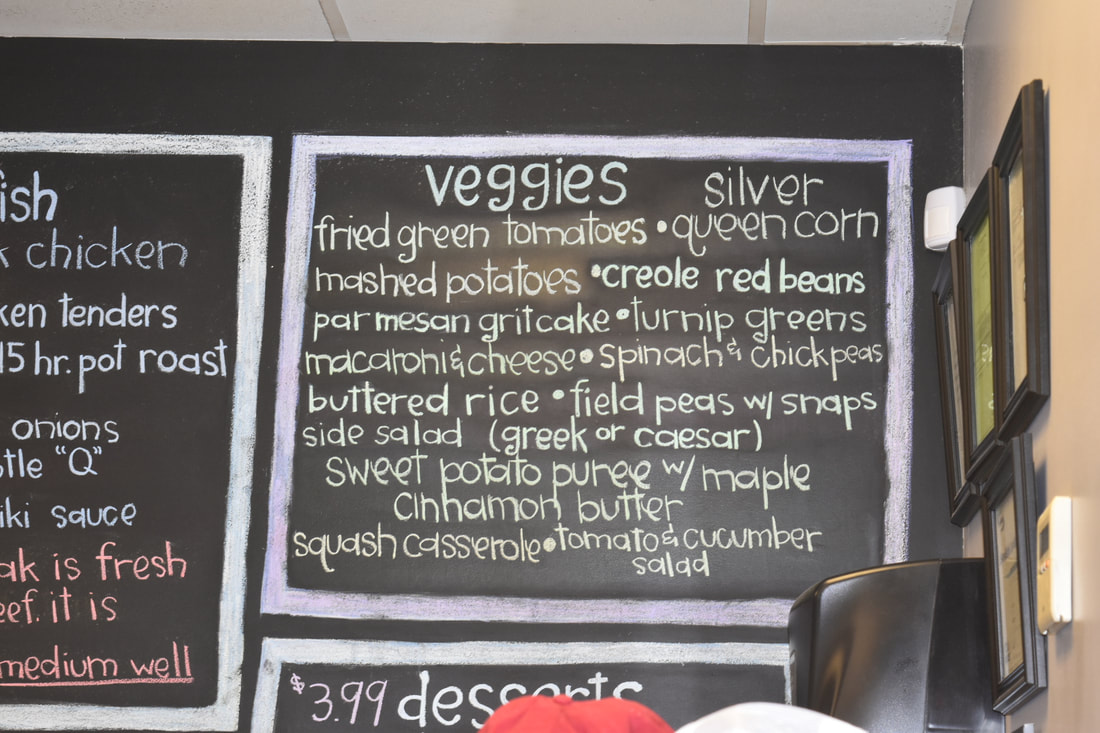 fish
chicken
tenders
15 hr. pot roast
onions
"Q"
sauce
is fresh
it is
medium well
veggies silver
fried green tomatoes • queen corn
mashed potatoes • creole red beans
parmesan grit cake • turnip greens
macaroni & cheese • spinach & chickpeas
buttered rice • field peas w/ snaps
side salad (greek or caesar)
sweet potato puree w/ maple
cinnamon butter
squash casserole • tomato & cucumber
salad
$3.99 desserts